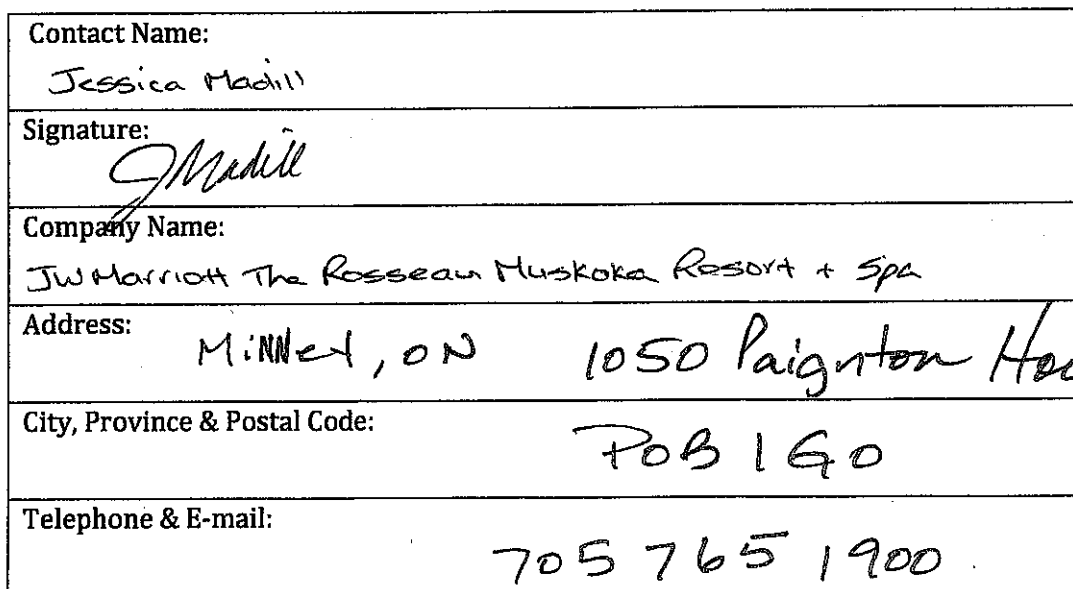 Contact Name:
Jessica Madill
Signature:
JMadill
Company Name:
JW Marriott The Rosseau Muskoka Resort + Spa
Address:
MiNNet, ON 1050 Paignton Hou
City, Province & Postal Code:
POB 1G0
Telephone & E-mail:
705 765 1900